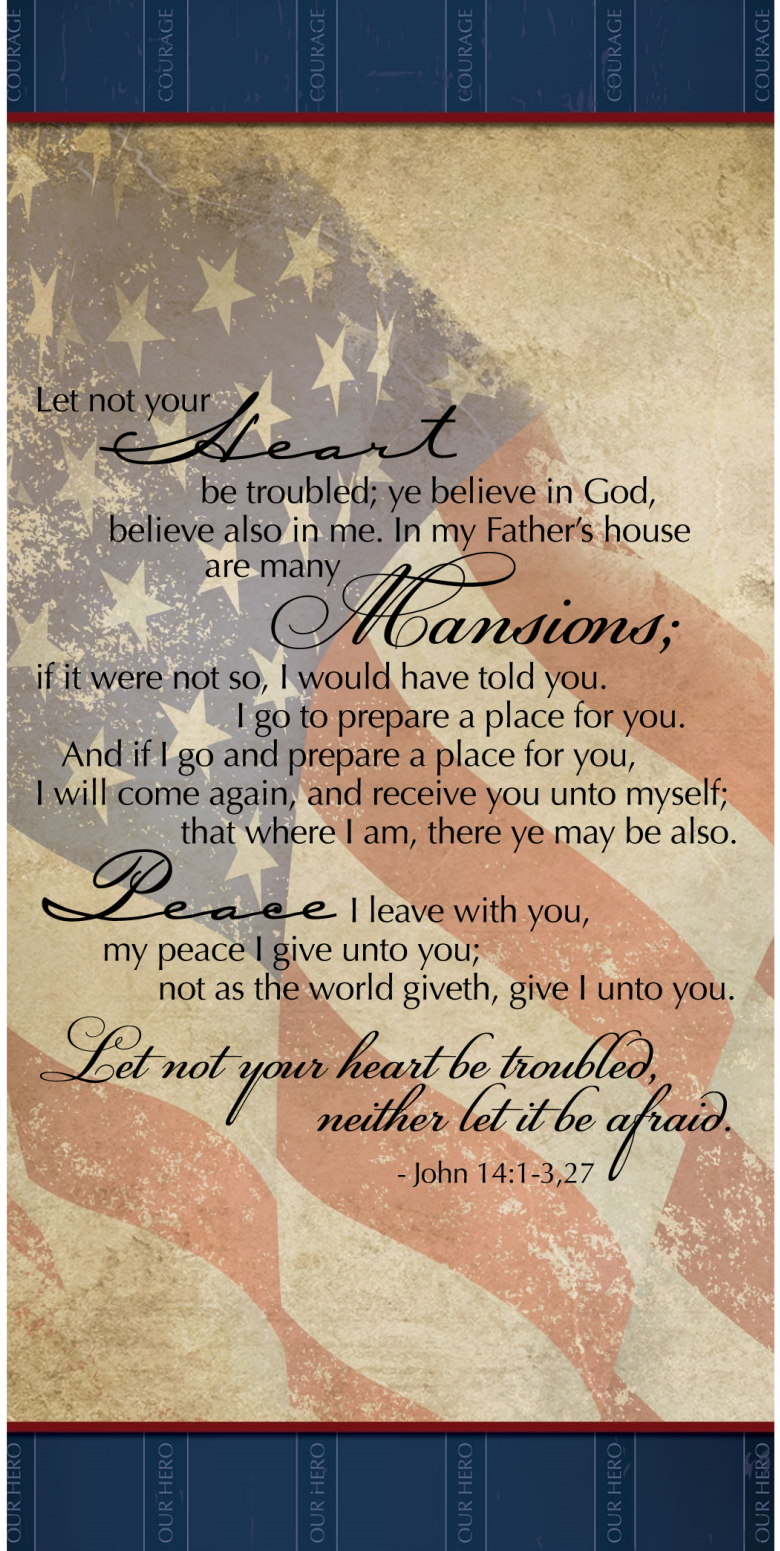 COURAGE COURAGE COURAGE COURAGE COURAGE COURAGE
Let not your
Heart
be troubled; ye believe in God,
believe also in me. In my Father's house
are many
Mansions;
if it were not so, I would have told you.
I go to prepare a place for you.
And if I go and prepare a place for you,
I will come again, and receive you unto myself;
that where I am, there ye may be also.
Peace I leave with you,
my peace I give unto you;
not as the world giveth, give I unto you.
Let not your heart be troubled,
neither let it be afraid.
- John 14:1-3,27
OUR HERO OUR HERO OUR HERO OUR HERO OUR HERO OUR HERO